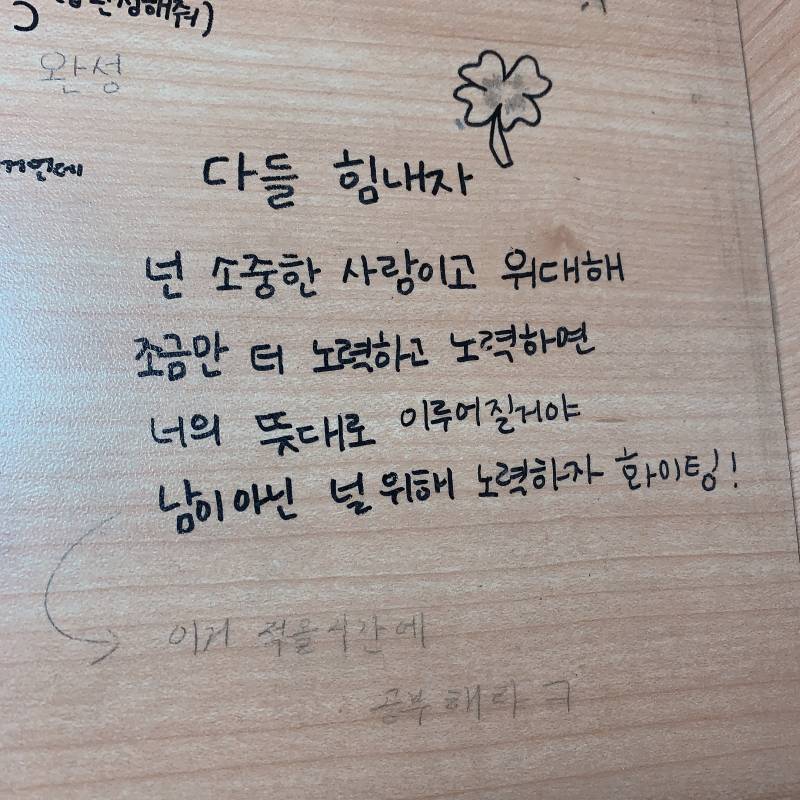 해줘)
완성
다들 힘내자
넌 소중한 사람이고 위대해
조금만 더 노력하고 노력하면
너의 뜻대로 이루어질거야
남이 아닌 널 위해 노력하자 화이팅!
이거 적을시간에
공부해라 ㅋ